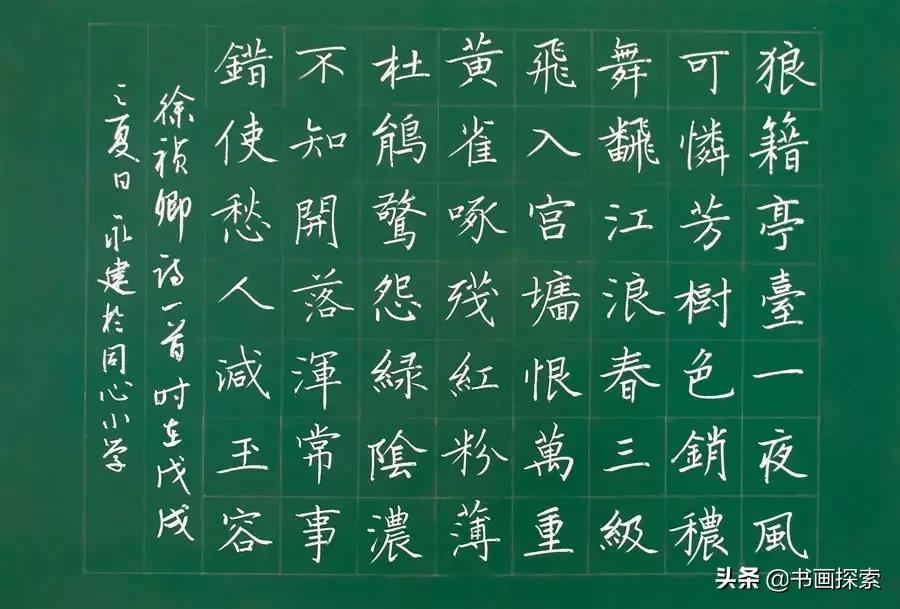 狼籍亭臺一夜風
可憐芳樹色銷穠
舞飜江浪春三級
飛入宮墻恨萬重
黃雀啄殘紅粉薄
杜鵑驚怨綠陰濃
不知開落渾常事
錯使愁人減玉容
徐祯卿诗一首时在戊戌
之夏日永建於同心小学
头条 @书画探索